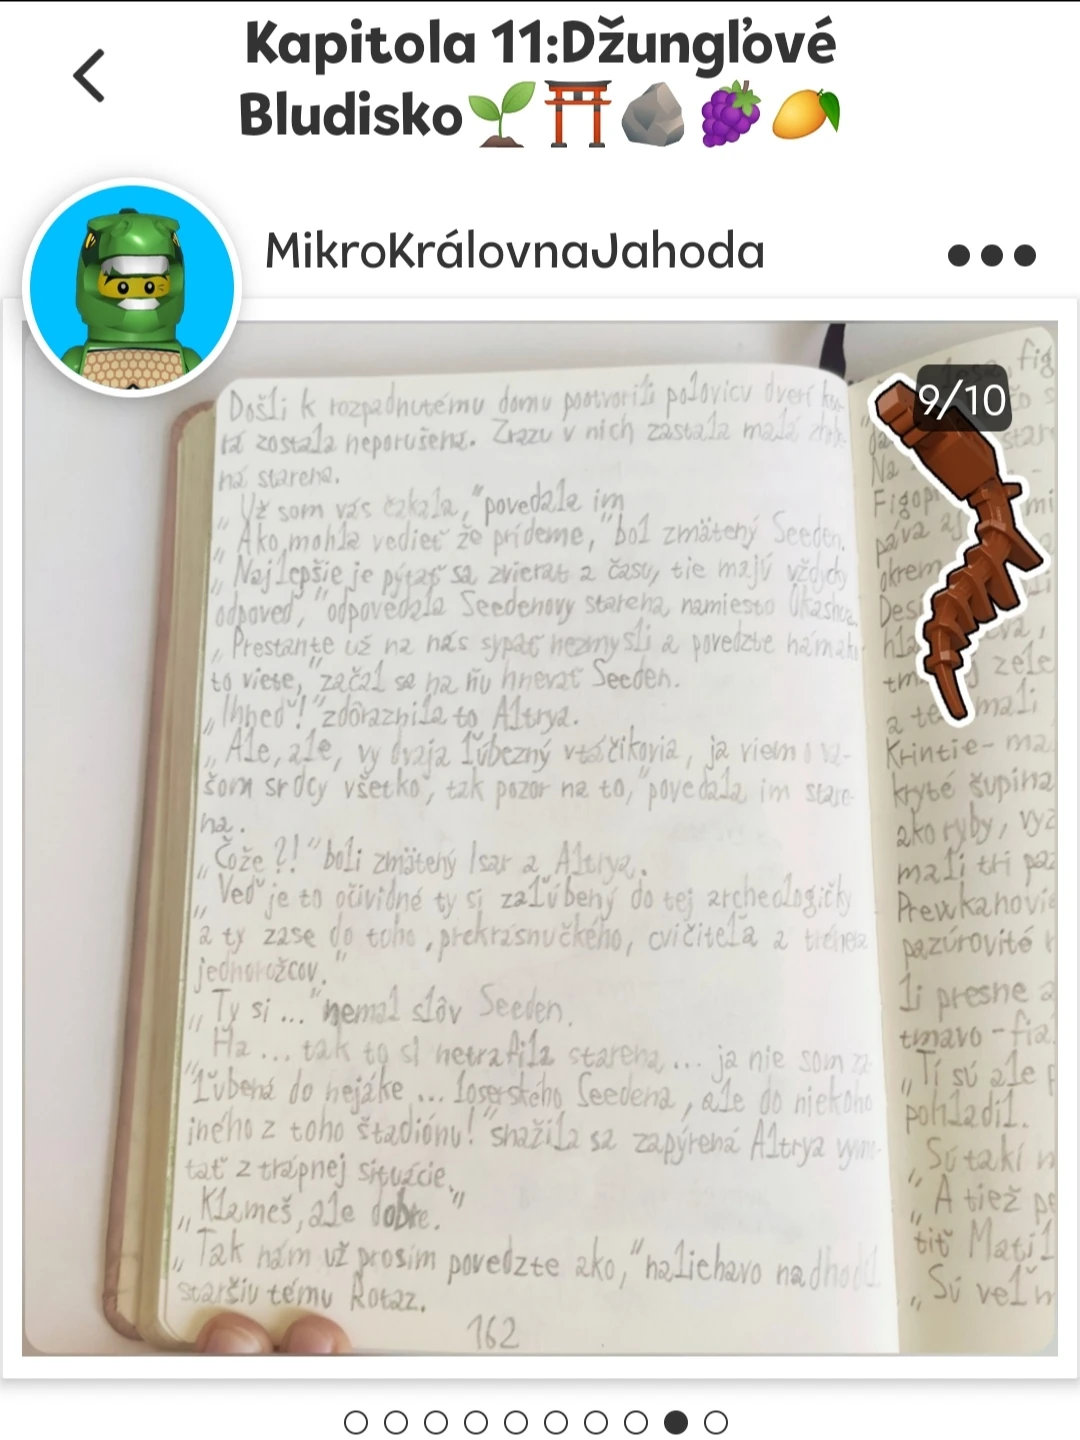 Kapitola 11:Džungľové
Bludisko
MikroKrálovnaJahoda
9/10
Došli k rozpadnutému domu pootvorili polovicu dverí
rá zostala neporušená. Zrazu v nich zastala malá
ná starena.
„Už som vás čakala,“povedala im
„Ako mohla vedieť že prídeme,“bol zmätený Seeden.
„Najlepšie je pýtať sa zvierat a času, tie majú vždycky
odpoveď,“odpovedala Seedenovy starena namiesto
„Prestante už na nás sypať nezmysli a povedzte
to viete,“začal sa na ňu hnevať Seeden.
„Ihneď!“zdôraznila to Altrya.
„Ale, ale, vy dvaja ľúbezný vtáčikovia, ja viem o va-
šom srdcy všetko, tak pozor na to,“povedala im stare-
na.
„Čože?!“boli zmätený Isar a Altrya.
„Veď je to očividné ty si zaľúbený do tej archeologičky
a ty zase do toho ,prekrásnučkého, cvičiteľa a trénera
jednorožcov.“
„Ty si ...“nemal slôv Seeden.
„Ha ... tak to si netrafila starena... ja nie som za
ľúbená do nejáke ... loserského Seedena, ale do niekoho
iného z toho štadiónu!“snažila sa zapýrená Altrya vymo-
tať z trápnej situácie.
„Klameš, ale dobre.“
„Tak nám už prosím povedzte ako,“naliehavo nadhodil
staršiu tému Rotaz.
162
fig
Na
okrem
zele
mali
Krintie-
kryté šupina
ako ryby,
mali tri paz
Prewkanovia
pazúrovité
li presne a
tmavo-fia
„Tí sú ale
pohladil.
„Sú takí
„A tiež
tiť
„Sú veľ